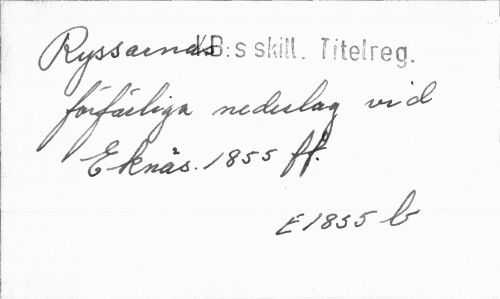 Ryssarnas KB:s skill. Titelreg.
förfärliga nederlag vid
Eknäs. 1855 ff.
E 1855 b